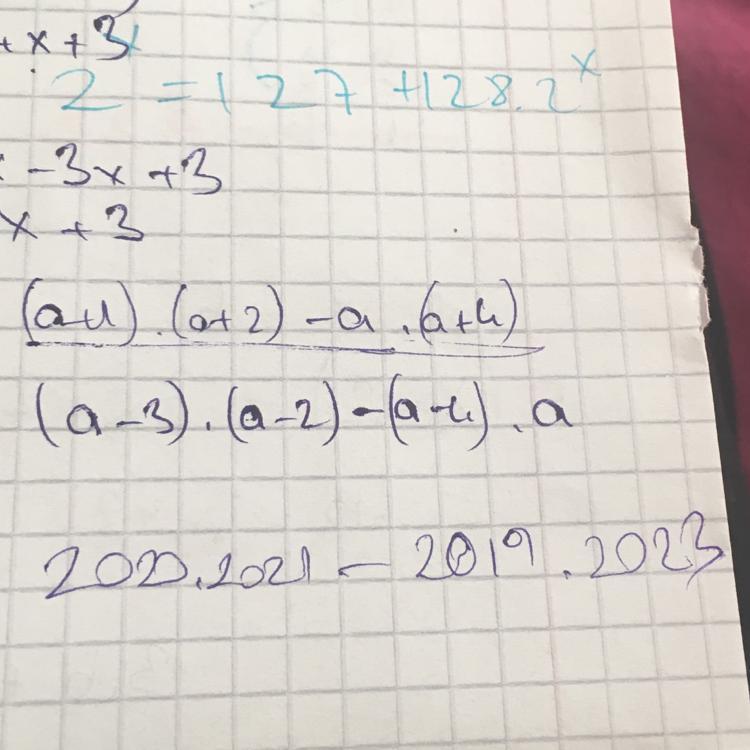 + x + 3
2 = 127 + 128.2^x
- 3x + 3
x + 3
(a+1).(a+2) - a.(a+4)
(a-3).(a-2) - (a-4).a
2020.2021 - 2019.2023